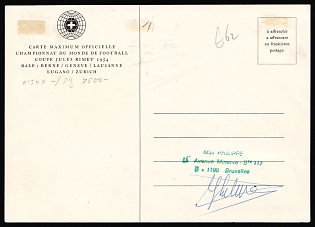 CARTE MAXIMUM OFFICIELLE
CHAMPIONNAT DU MONDE DE FOOTBALL
COUPE JULES RIMET 1954
BALE / BERNE / GENÈVE / LAUSANNE
LUGANO / ZURICH
à affranchir
a affrancare
zu frankieren
postage
Max PHILIPPE
Avenue Minerve - Bte 117
B - 1190 Bruxelles